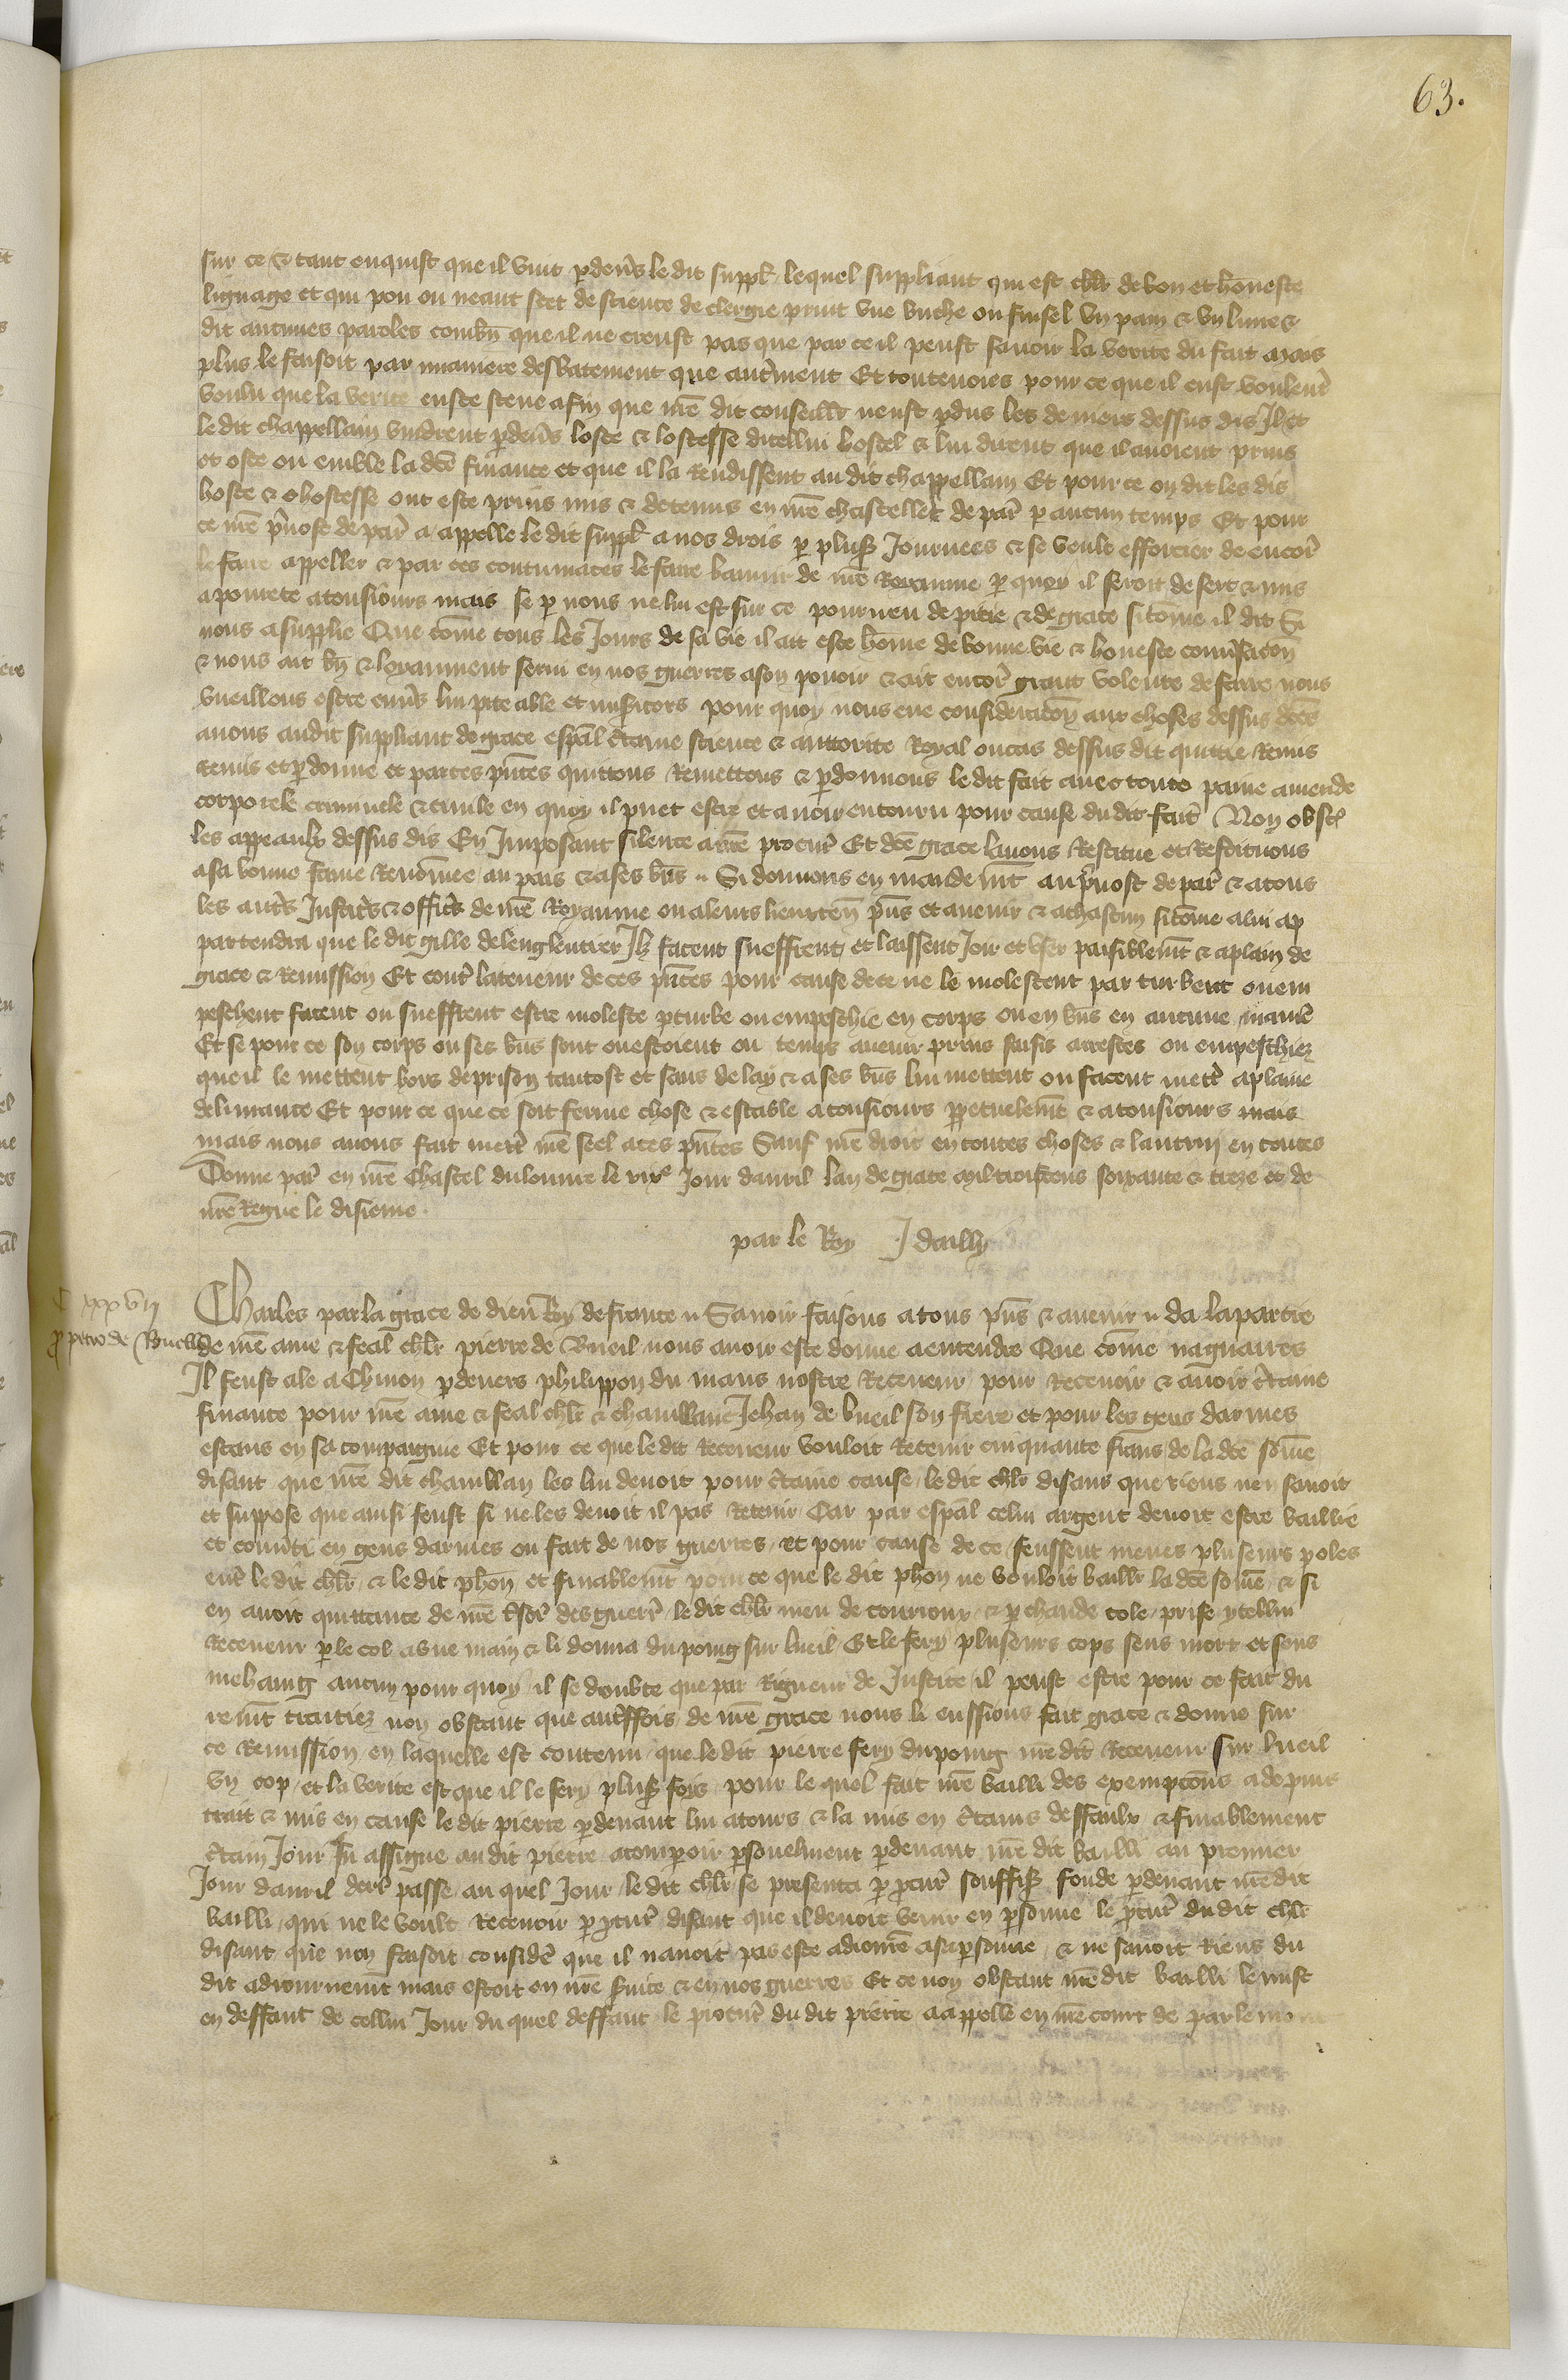 63.
sur ce & tant enquist que il vint p devers le dit suppl lequel suppliant qui est chlr de bon et honneste
lignage et qui pou ou neant scet de science de clergie prist une buche ou fuisel un pain & un livre &
dit aucunes paroles combn que il ne creust pas que par ce il peust savoir la verite du fait mais
plus le faisoit par maniere desbatement que autrement Et toutevoies pour ce que il eust voulentr
voulu que la verite eust este sceue afin que nre dit conseillr neust pdus les deniers dessus dis Il et
le dit chappellain vindrent p devs loste & lostesse dicellui hostel & lui dirent que il avoient prins
et oste ou emble la dce finance et que il la rendissent au dit chappellain Et pour ce on dit les dis
hoste & ohostesse ont este prins mis & detenus en nre chastellet de par p aucun temps Et pour
ce nre pvost de par a appelle le dit suppl a nos drois p plus Journees & se veult efforcier de encor
le faire appeller & par ces contumaces le faire bannir de nre Royaume p quoy il seroit desert & mis
a povrete a tousiours mais se p nous ne lui est sur ce pourveu de pitie & de grace si come il dit Si
nous a supplie Que come tous les Jours de sa vie il ait este home de bonne vie & honeste convsacion
& nous ait bn & loyaument servi en nos guerres a son povoir & ait encor grant volente de faire nous
vueillons estre envs lui piteable et misicors pour quoy nous eue consideracion aux choses dessus dces
avons audit suppliant de grace espal ctaine science & auttorite Royal ou cas dessus dit quittie Remis
remis et pdonne et par ces pntes quittons Remettons & pdonnons le dit fait avec toute paine amende
corporele criminele & civile en quoy il puet estre et avoir encouru pour cause du dit fait Non obst
les appeaulx dessus dis En Imposant silence a nre procur Et dce grace lavons Restitue et Restituons
a sa bonne fame Renomee au pais & a ses bns Si donnons en mandemt au pvost de par & a tous
les autrs Justiciers & officrs de nre Royaume ou a leurs lieuxten pns et avenir & a chascun si come a lui ap
partendra que le dit gille de lenglentier Ilz facent sueffrent et laissent Joir et user paisiblemt & a plain de
grace & Remission Et contr la teneur de ces pntes pour cause de ce ne le molestent par turbent ou em
peschent facent ou sueffrent estre moleste pturbe ou empeschie en corps ou en bns en aucune maniere
Et se pour ce son corps ou ses bns sont ou estoient ou temps avenir prins saisis arrestes ou empeschiez
que il le mettent hors de prison tantost et sans delay & a ses bns lui mettent ou facent mettr a plaine
delivrance Et pour ce que ce soit ferme chose & estable a tousiours ppetuelemt & a tousiours mais
mais nous avons fait metr nre seel a ces pntes Sauf nre droit en toutes choses & lautruy en toutes
Donne par en nre Chastel du louvre le xixe Jour davril lan de grace mil troiscens soixante & treze et de
nre Regne le disieme
par le Roy J dailly
C xxxvii
p petro de Bueill
Charles par la grace de dieu Roy de france Savoir faisons a tous pns & avenir da la partie
de nre ame & feal chlr pierre de Bueil nous avoir este donne a entendre Que come naguaires
Il feust ale a Chinon p devers philippon du mans nostre Receveur pour Recevoir & avoir ctaine
finance pour nre ame & feal chlr & chambllanc Jehan de bueil son frere et pour les gens darmes
estans en sa compaignie Et pour ce que le dit Receveur vouloit Retenir cinquante frans de la dce some
disant que nre dit chambllan les lui devoit pour ctaine cause le dit chlr disans que riens nen savoit
et suppose que ainsi feust si ne les devoit il pas Retenir Car par espal celui argent devoit estre baillie
et convti en gens darmes ou fait de nos guerres et pour cause de ce feussent meues pluseurs poles
entr le dit chlr & le dit phon et finablemt pour ce que le dit phon ne vouloit baillr la dce some & si
en avoit quittance de nre tsor des guerr le dit chlr meu de courroux & p chaude cole prist ycellui
Receveur p le col a une main & li donna du poing sur lueil Et le fery pluseurs cops sens mort et sens
mehaing aucun pour quoy il se doubte que par Rigueur de Justice il peust estre pour ce fait du
remt traitiez non obstant que autrffois de nre grace nous li eussions fait grace & donne sur
ce Remission en laquelle est contenu que le dit pierre fery du poing nre dit Receveur sur lueil
un cop et la verite est que il le fery plus fois pour le quel fait nre bailli des exempcons a depuis
trait & mis en cause le dit pierre p devant lui a tours & la mis en ctains deffaulx & finablement
ctain Jour fu assigne au dit pierre a comparoir psonelment p devant nre dit bailli au premier
Jour davril derr passe au quel Jour le dit chlr se presenta p pcur souffis fonde p devant nre dit
bailli qui ne le voult Recevoir p pcur disant que il devoit venir en psonne le pcur du dit chlr
disant que non faisoit considr que il navoit pas este adiorne a sa psonne & ne savoit Riens du
dit adiournemt mais estoit en nre svice & en nos guerres Et ce non obstant nre dit bailli le mist
en deffaut de cellui Jour du quel deffaut le procur du dit pierre a appelle en nre court de parlement